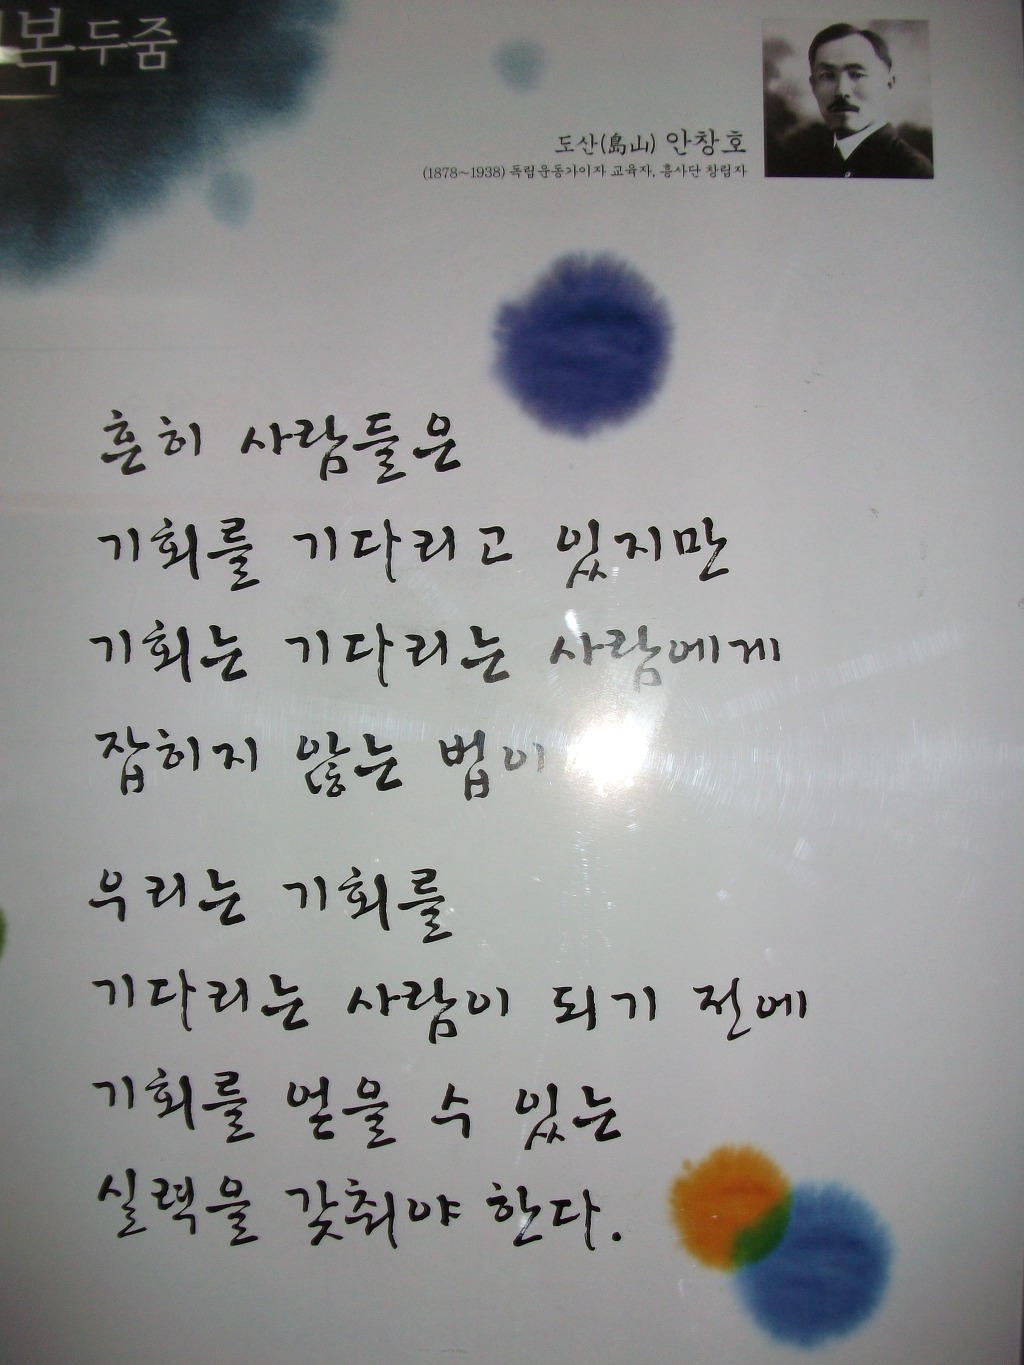 복두줌
도산(島山) 안창호
(1878~1938) 독립운동가이자 교육자, 흥사단 창립자
흔히 사람들은
기회를 기다리고 있지만
기회는 기다리는 사람에게
잡히지 않는 법이
우리는 기회를
기다리는 사람이 되기 전에
기회를 얻을 수 있는
실력을 갖춰야 한다.